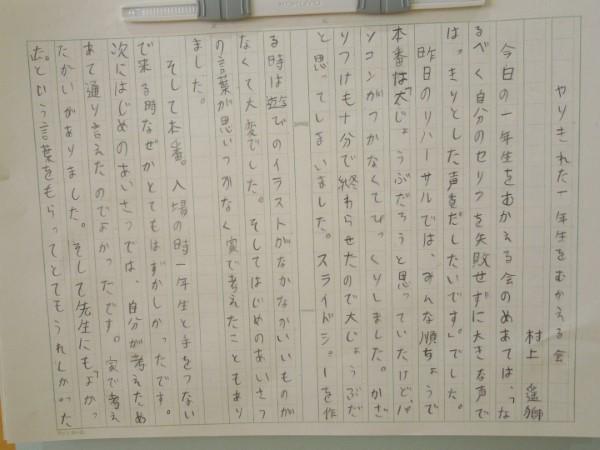 やりきれた一年生をむかえる会
村上
今日の一年生をむかえる会のめあては、「な
るべく自分のセリフを失敗せずに大きな声で
は。きりとした声をだしたいです」でした。
昨日のリハーサルでは、みんな順ちょうで
本番は「大じょうぶだろうと思っていたけど、パ
ソコンがつかなくてびっくりしました。かざ
りつけも十分で終わらせたので大じょうぶだ
と思ってしまいました。スライドショーを作
る時は遊びのイラストがなかなかいいものが
なくて大変でした。そしてはじめのあいさつ
の言葉が思いつかなく家で考えたこともあり
ました。
そして本番。入場の時一年生と手をつない
で来る時なぜかとてもはずかしかったです。
次にはじめのあいさつでは、自分が考えため
あて通り言えたのでよかったです。家で考え
たかいがありました。そして先生にも「よかっ
た。」という言葉をもらってとてもうれしかった